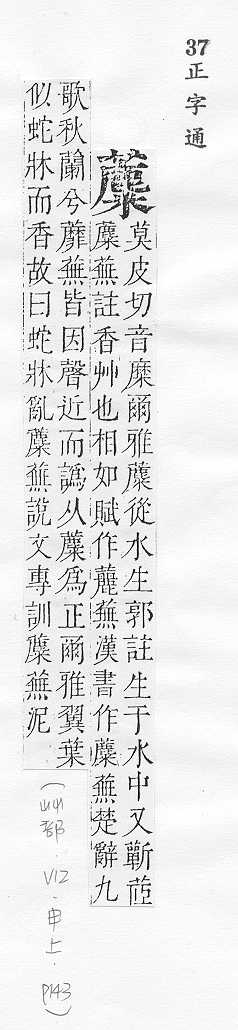 37 正字通
蘪
莫皮切音麋爾雅蘪從水生郭註生于水中又蘄茝
蘪蕪註香艸也相如賦作蘼蕪漢書作蘪蕪楚辭九
歌秋蘭兮蘼蕪皆因聲近而譌从蘪為正爾雅翼葉
似蛇牀而香故曰蛇牀亂蘪蕪說文專訓蘪蕪泥
(艸部.V12.申上.P143)